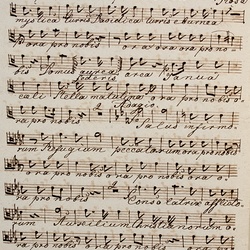 Rosa
mystica turris Davidica turris eburnea
ora pro nobis ora ora pro no-
bis Domus aurea arca Janua
foederis
caeli stella matutina ora pro nobis o-
Adagio
ra pro nobis Salus infirmo-
rum Refugium peccatorum ora pro nobis
ora pro nobis Consolatrix afflicto-
rum Auxilium Christianorum o-
ra pro nobis ora pro nobis